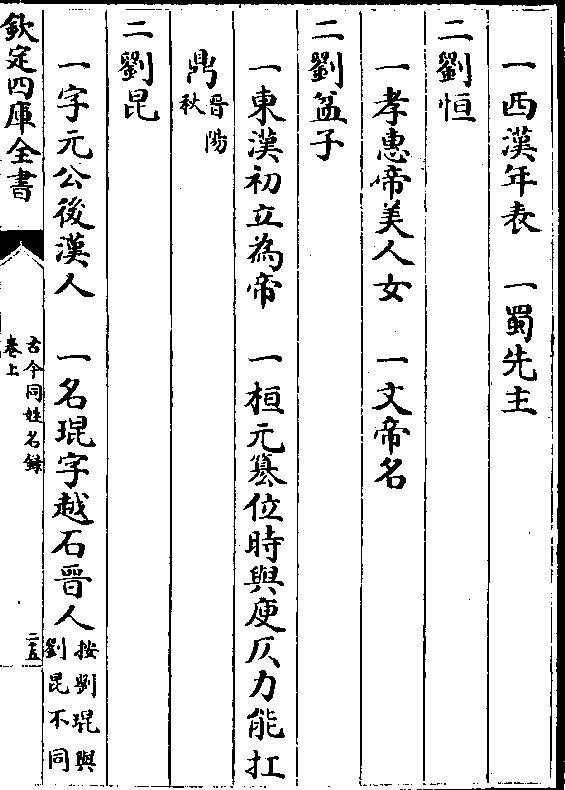 一西漢年表　一蜀先主
二劉恒
一孝惠帝美人女　一文帝名
二劉盆子
一東漢初立為帝　一桓元簒位時與庾仄力能扛
鼎晉陽秋
二劉昆
一字元公後漢人　一名琨字越石晉人按劉琨與劉昆不同
欽定四庫全書
古今同姓名録
卷上
二五